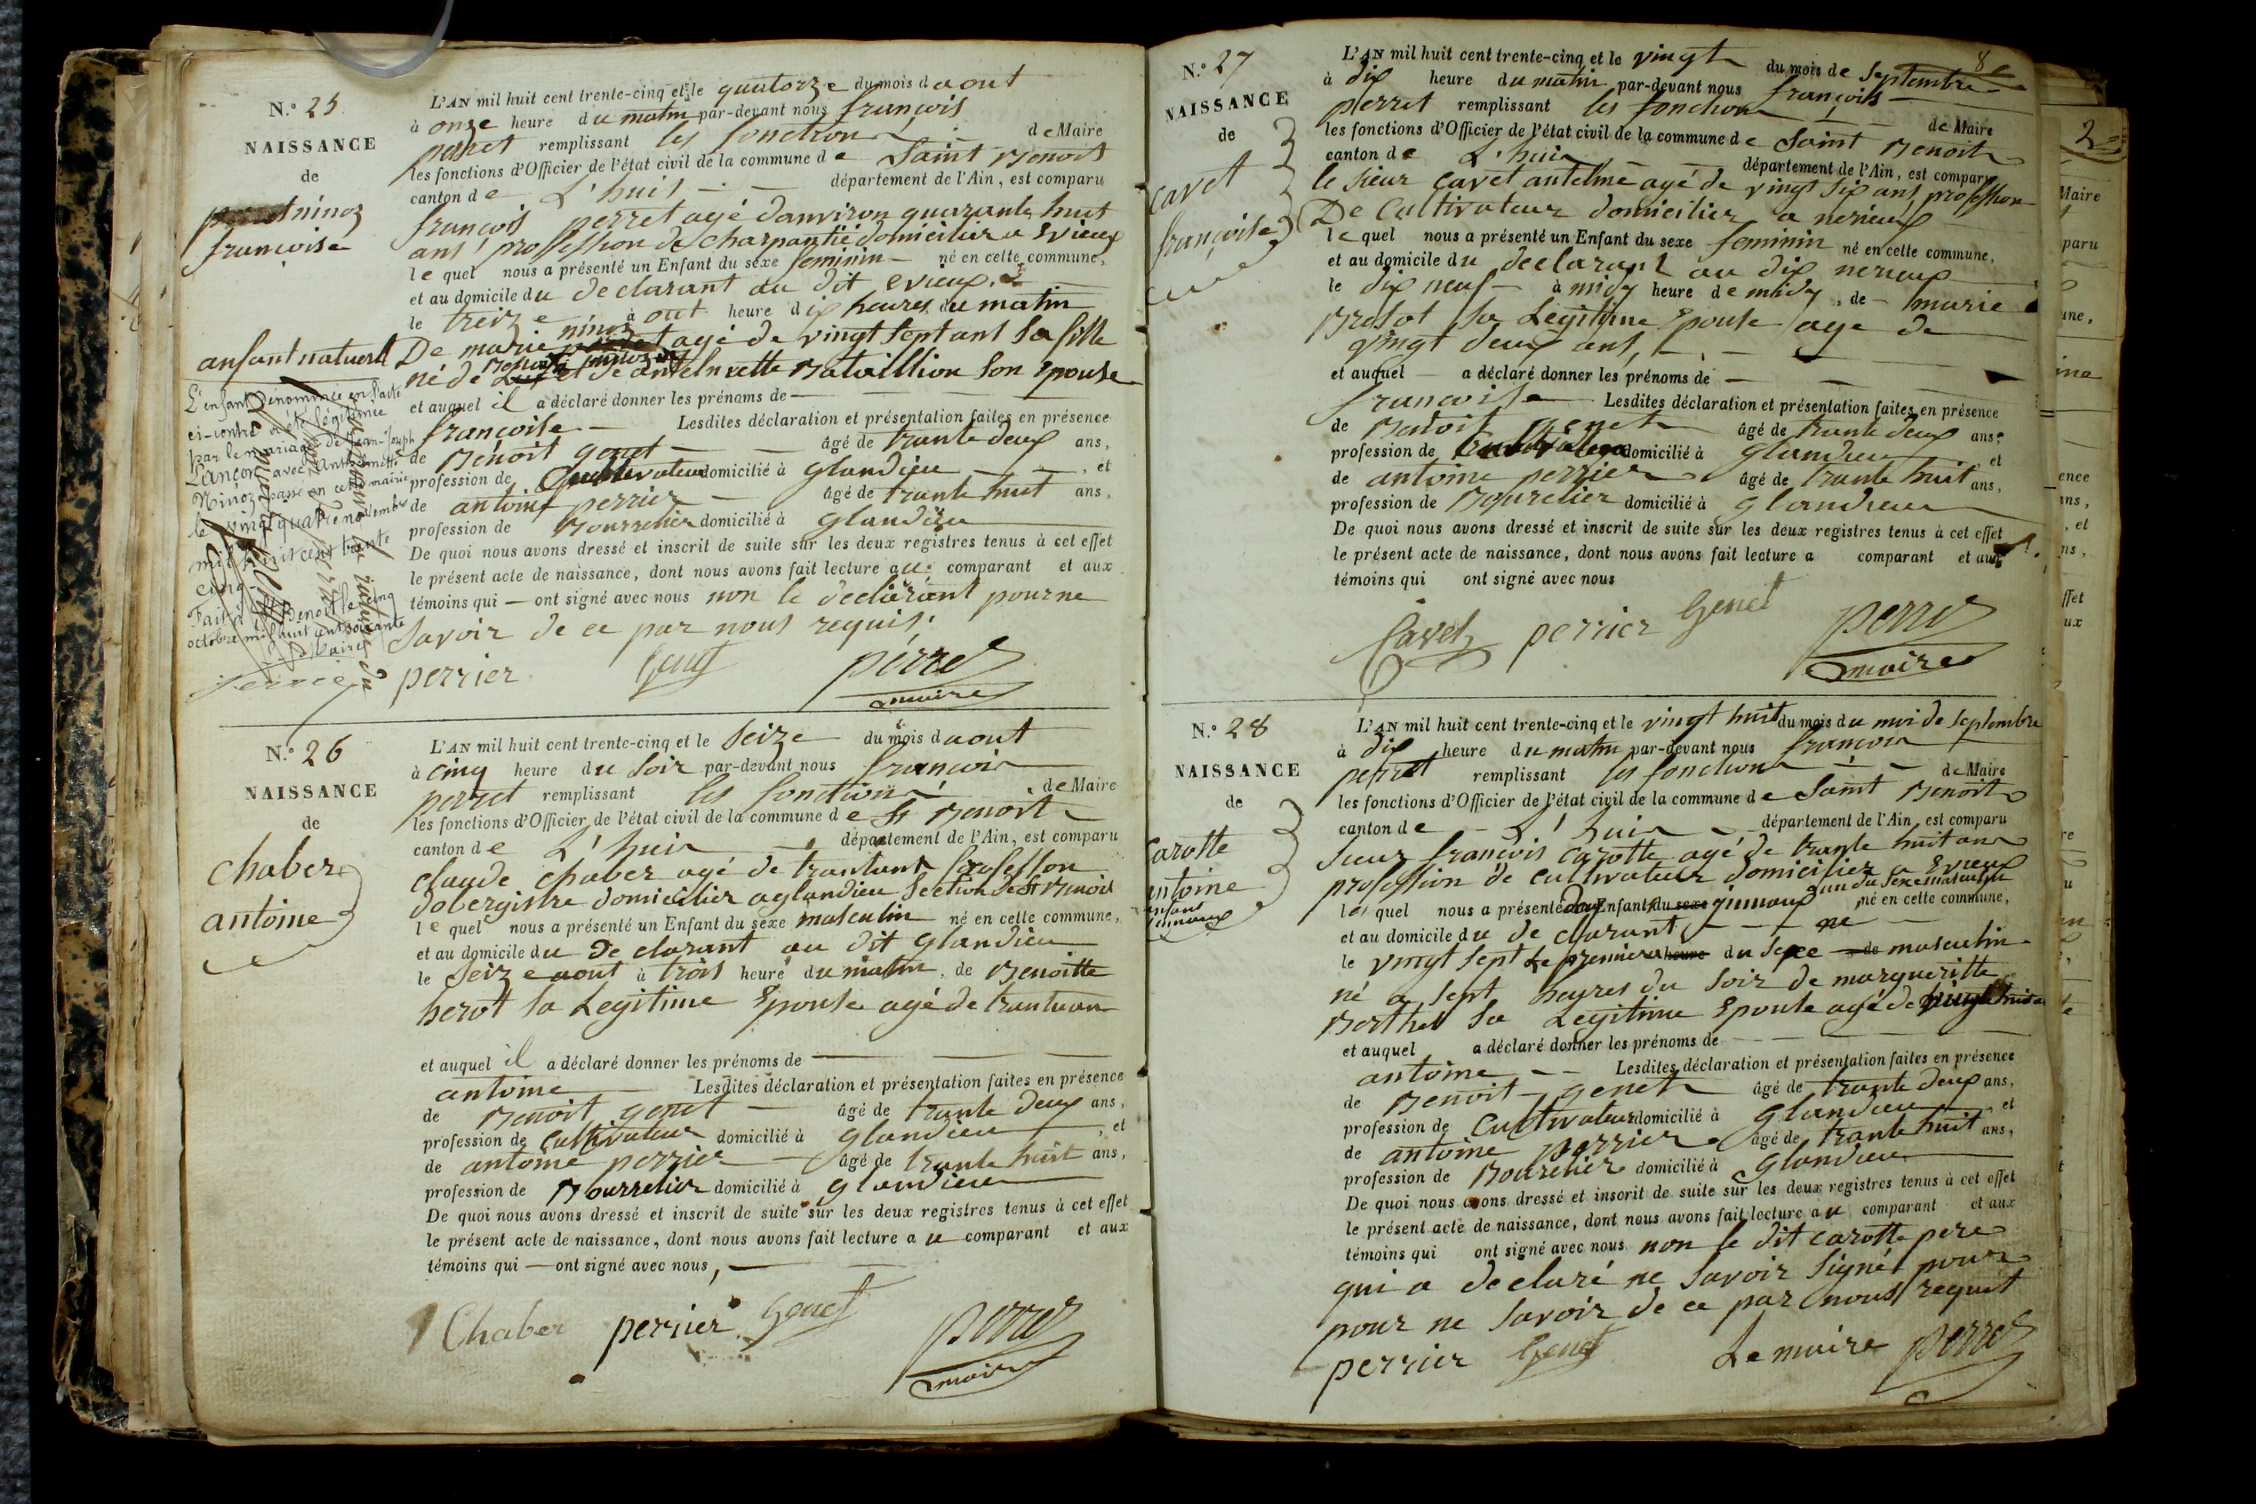 N.° 25
NAISSANCE
de
ninoz
françoise
anfant naturel
L'enfant dénommée en l'acte
ci-contre a été légitimée
par le mariage de Jean-Joseph
Lançon avec Anthelmette
Ninoz passé en cette mairie
le vingt quatre novembre
mil huit cent trente
cinq
octobre mil huit cent soixante
L'AN mil huit cent trente-cinq et le quatorze du mois d aout
à onze heure du matin par-devant nous françois
perret remplissant les fonctions de Maire
les fonctions d'Officier de l'état civil de la commune de Saint Benoit
canton de L'huis département de l'Ain, est comparu
françois perret agé danviron quarante huit
ans profession de charpantié domicilier a Evieux
le quel nous a présenté un Enfant du sexe feminin né en cette commune,
et au domicile du declarant au dit evieux
le treize à out heure dix heures du matin
De marie ninoz agé de vingt sept ans sa fille
né de Benoit ninoz et de antelmette Bataillion son Epouse
et auquel il a déclaré donner les prénoms de
françoise Lesdites déclaration et présentation faites en présence
de Benoit genet âgé de trante deux ans,
profession de Cultivateur domicilié à glandieu, et
de antoine perrier âgé de trante huit ans,
profession de Bourrelier domicilié à glandieu
De quoi nous avons dressé et inscrit de suite sur les deux registres tenus à cet effet
le présent acte de naissance, dont nous avons fait lecture au comparant et aux
témoins qui — ont signé avec nous non le declarant pour ne
savoir de ce par nous requis.
perrier Genet perret
maire
N.° 26
NAISSANCE
de
chaber
antoine
L'AN mil huit cent trente-cinq et le seize du mois d aout
à cinq heure du soir par-devant nous françois
perret remplissant les fonctions de Maire
les fonctions d'Officier de l'état civil de la commune de St Benoit
canton de L'huis département de l'Ain, est comparu
claude chaber agé de trantans profession
dobergistre domicilier aglandieu section de St Benoit
le quel nous a présenté un Enfant du sexe masculin né en cette commune,
et au domicile du De clarant au dit glandieu
le seize aout à trois heure du matin, de Benoitte
herot sa Legitime Epouse agé de trantuan
et auquel il a déclaré donner les prénoms de
antoine Lesdites déclaration et présentation faites en présence
de Benoit genet âgé de trante deux ans,
profession de cultivateur domicilié à glandieu, et
de antoine perrier âgé de trante huit ans,
profession de Bourrelier domicilié à glandieu
De quoi nous avons dressé et inscrit de suite sur les deux registres tenus à cet effet
le présent acte de naissance, dont nous avons fait lecture au comparant et aux
témoins qui — ont signé avec nous,
Chaber perrier Genet perret
maire
8
N.° 27
NAISSANCE
de
cavet
françoise
L'AN mil huit cent trente-cinq et le vingt du mois de septembre
à dix heure du matin par-devant nous françois
perret remplissant les fonctions de Maire
les fonctions d'Officier de l'état civil de la commune de Saint Benoit
canton de L'huis département de l'Ain, est comparu
le sieur cavet antelme agé de vingt six ans, profession
De cultivateur domicilier a nerieux
le quel nous a présenté un Enfant du sexe feminin né en cette commune,
et au domicile du declarant au dix nerieux
le dix neuf à midy heure de midy, de marie
Brosot sa Legitime Epouse age de
vingt deux ans,
et auquel — a déclaré donner les prénoms de
françoise Lesdites déclaration et présentation faites en présence
de Benoit genet âgé de trante deux ans,
profession de domicilié à glandieu et
de antoine perrier âgé de trante huit ans,
profession de Bourelier domicilié à glandieu
De quoi nous avons dressé et inscrit de suite sur les deux registres tenus à cet effet
le présent acte de naissance, dont nous avons fait lecture a comparant et aux
témoins qui ont signé avec nous
Cavet perrier Genet perret
maire
N.° 28
NAISSANCE
de
Carotte
antoine
enfans
jumeaux
L'AN mil huit cent trente-cinq et le vingt huit du mois du moi de septembre
à dix heure du matin par-devant nous françois
perret remplissant les fonctions de Maire
les fonctions d'Officier de l'état civil de la commune de Saint Benoit
canton de L'huis département de l'Ain, est comparu
sieur françois carotte agé de trante huit ans
profession de cultivateur domicilier a Evieux
le quel nous a présenté deux Enfant du sexe jumeaux un du sexe masculin né en cette commune,
et au domicile du de clarant ne
le vingt sept Le premier heure du sexe de masculin
né a sept heures du soir de margueritte
Berthet sa Legitime Epouse agé de huit
et auquel a déclaré donner les prénoms de
antoine Lesdites déclaration et présentation faites en présence
de Benoit genet âgé de trante deux ans,
profession de Cultivateur domicilié à glandieu, et
de antoine perrier âgé de trante huit ans,
profession de Bourelier domicilié à glandieu
De quoi nous avons dressé et inscrit de suite sur les deux registres tenus à cet effet
le présent acte de naissance, dont nous avons fait lecture au comparant et aux
témoins qui ont signé avec nous non le dit carotte pere
qui a declaré ne savoir signé pour
pour ne savoir de ce par nous requit
perrier Genet Le maire perret